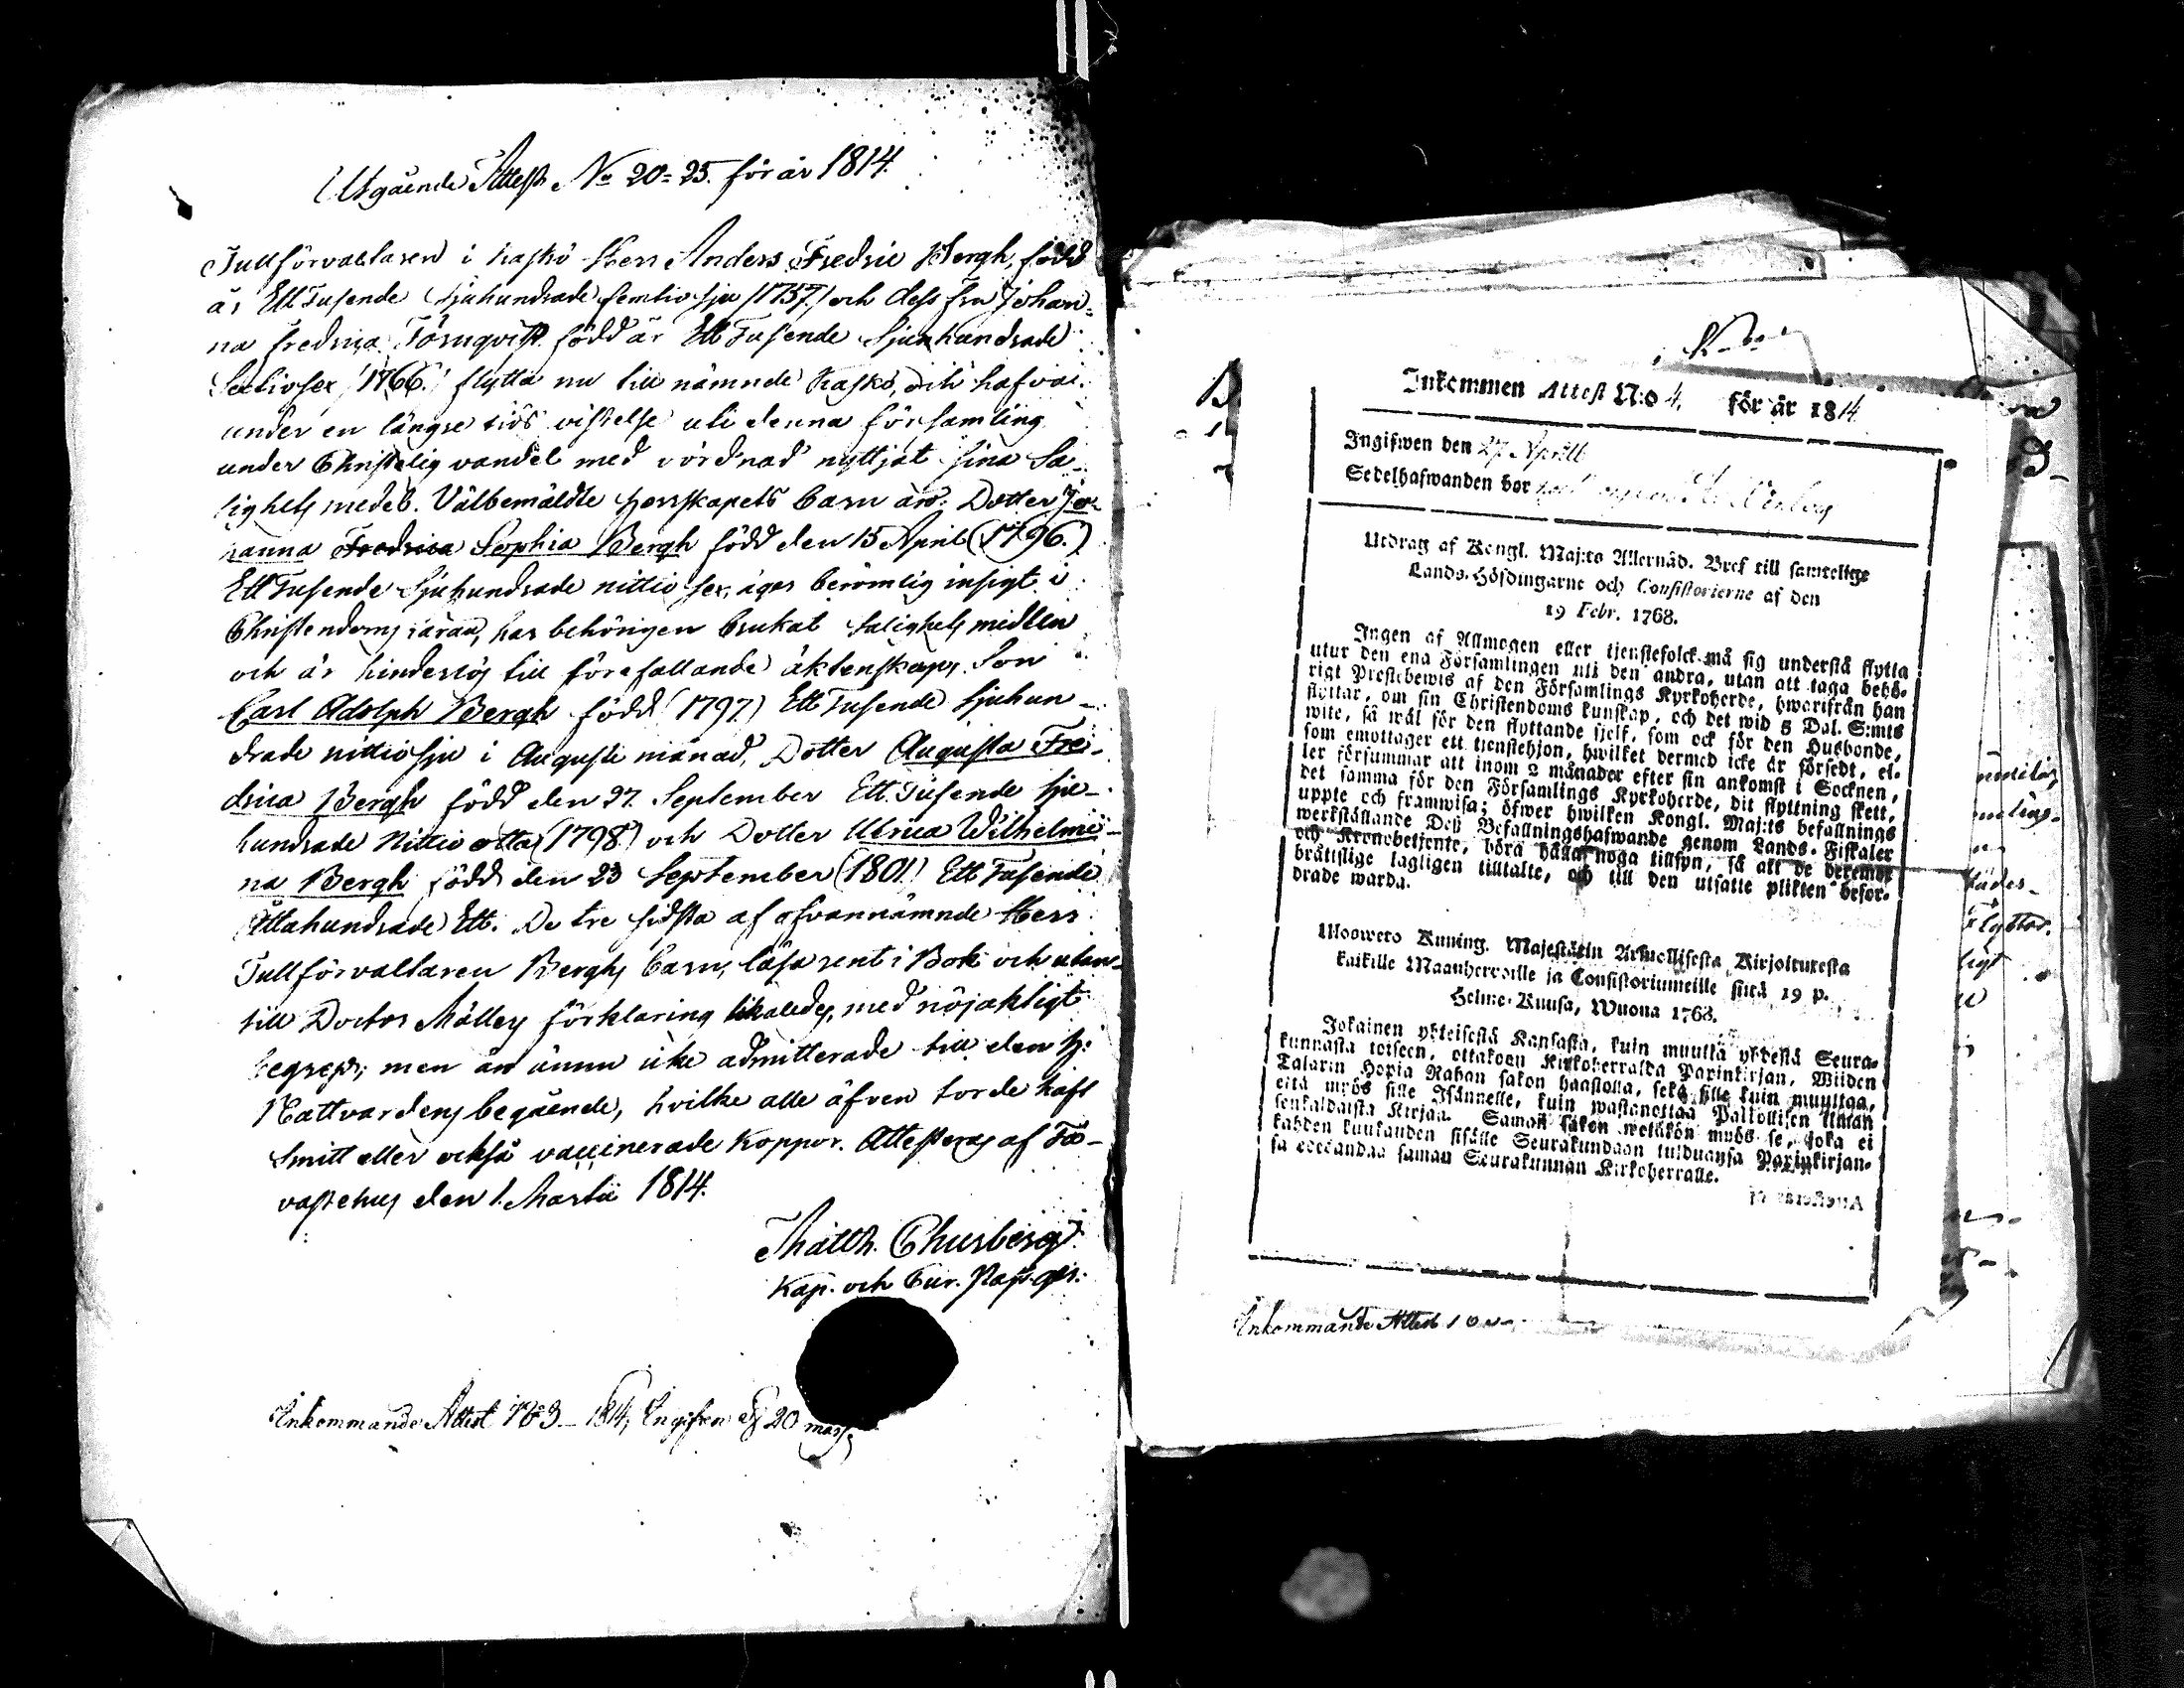 Utgående Attest No 20-25. för år 1814.
Tullförvaltaren i Kaskö Herr Anders Fredric Bergh, född
år Ett Tusende Sjuhundrade femtio sju /1757/ och dess fru Johan-
na Fredrica Törnqvist född år Ett Tusende Sjuhundrade
Sextiosex /1766./ flytta nu till nämnde Kaskö, och hafva
under en längre tids vistelse uti denna församling
under Christelig vandel med vördnad nyttjat sina Sa-
lighets medel. Välbemäldte Herrskapets barn äro: Dotter Jo-
hanna Fredrica Sophia Bergh född den 15 April (1796.)
Ett Tusende Sjuhundrade nittio sex, äger berömlig insigt i
Christendoms läran, har behörigen brukat salighets medlen
och är hinderslös till förefallande äktenskap, Son
Carl Adolph Bergh född (1797.) Ett Tusende Sjuhun-
drade nittiosju i Augusti månad, Dotter Augusta Fre-
drica Bergh född den 27. September Ett Tusende Sju-
hundrade Nittio otta (1798.) och Dotter Ulrica Wilhelmi-
na Bergh född den 23 September (1801.) Ett Tusende
Åttahundrade Ett. De tre sidsta af ofvannämnde Herr
Tullförvaltaren Berghs barn, läsa rent i Bok och utan-
till Doctor Möllers förklaring likaledes, med nöjaktigt
begrep; men än ännu icke admitterade till den H:
Nattvardens begående, hvilke alle äfven torde haft
Smitt eller också vaccinerade Koppor. Attesteras af Ta-
vastehus den 1. Martii 1814.
Matth. Chusberg
Kap. och Cur. Past. gis.
Inkommande Attest No 3 - 1814, Ingifven d 20 mars
Inkommen Attest N:o 4. för år 1814
Ingifwen den 27 Aprill
Sedelhafwanden bor
Utdrag af Kongl. Maj:ts Allernåd. Bref till samtelige
Lands-Höfdingarne och Consistorierne af den
19 Febr. 1768.
Ingen af Allmogen eller tjenstefolck må sig understå flytta
utur den ena Församlingen uti den andra, utan att taga behö-
rigt Prestebewis af den Församlings Kyrkoherde, hwarifrån han
flyttar, om sin Christendoms kunskap, och det wid 5 Dal. S:mts
wite, så wäl för den flyttande sjelf, som ock för den Husbonde,
som emottager ett tienstehjon, hwilket dermed icke är försedt, el-
ler försummar att inom 2 månader efter sin ankomst i Socknen,
det samma för den Församlings Kyrkoherde, dit flyttning skett,
uppte och framwisa; öfwer hwilken Kongl. Maj:ts befallnings
werkställande Deß Befallningshafwande genom Lands-Fiskaler
och Kronobetjente, böra hålla noga tillsyn, så att de deremot
bråttslige lagligen tilltalte, och till den utsatte plikten befor-
drade warda.
Uloswero Kuning. Majestätin Armollisesta Kirjoituxesta
kaikille Maanherroille ja Consistoriumeille siitä 19 p.
Helme-Kuusa, Wuona 1768.
Jokainen yhteisestä Kansasta, kuin muutta yhdestä Seura-
kunnasta toiseen, ottakoon Kirkoherralda Papinkirjan, Wiiden
Talarin Hopia Rahan sakon haastolla, sekä sille kuin muuttaa,
että myös sille Isännelle, kuin wastanottaa Palkollisen ilman
senkaldaista Kirjaa. Saman sakon wetäkön myös se, joka ei
kahden kuukauden sisälle Seurakundaan tulduansa Papinkirjan-
sa edesandaa saman Seurakunnan Kirkoherralle.
Inkommande Attest